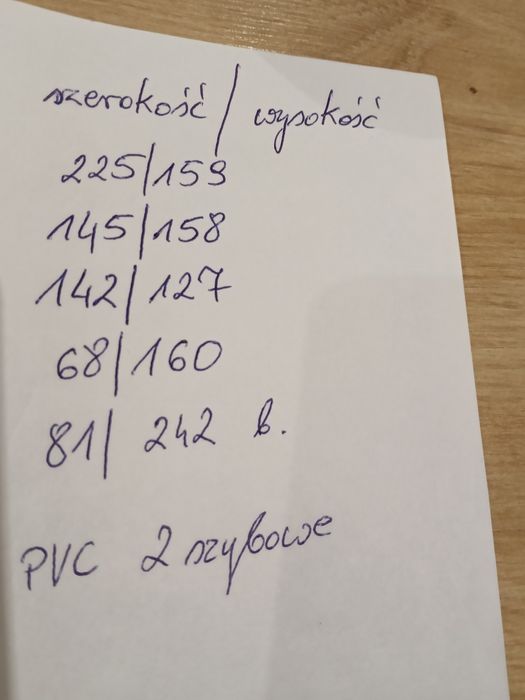 szerokość / wysokość
225/159
145/158
142/127
68/160
81/242 b.
PVC 2 szybowe